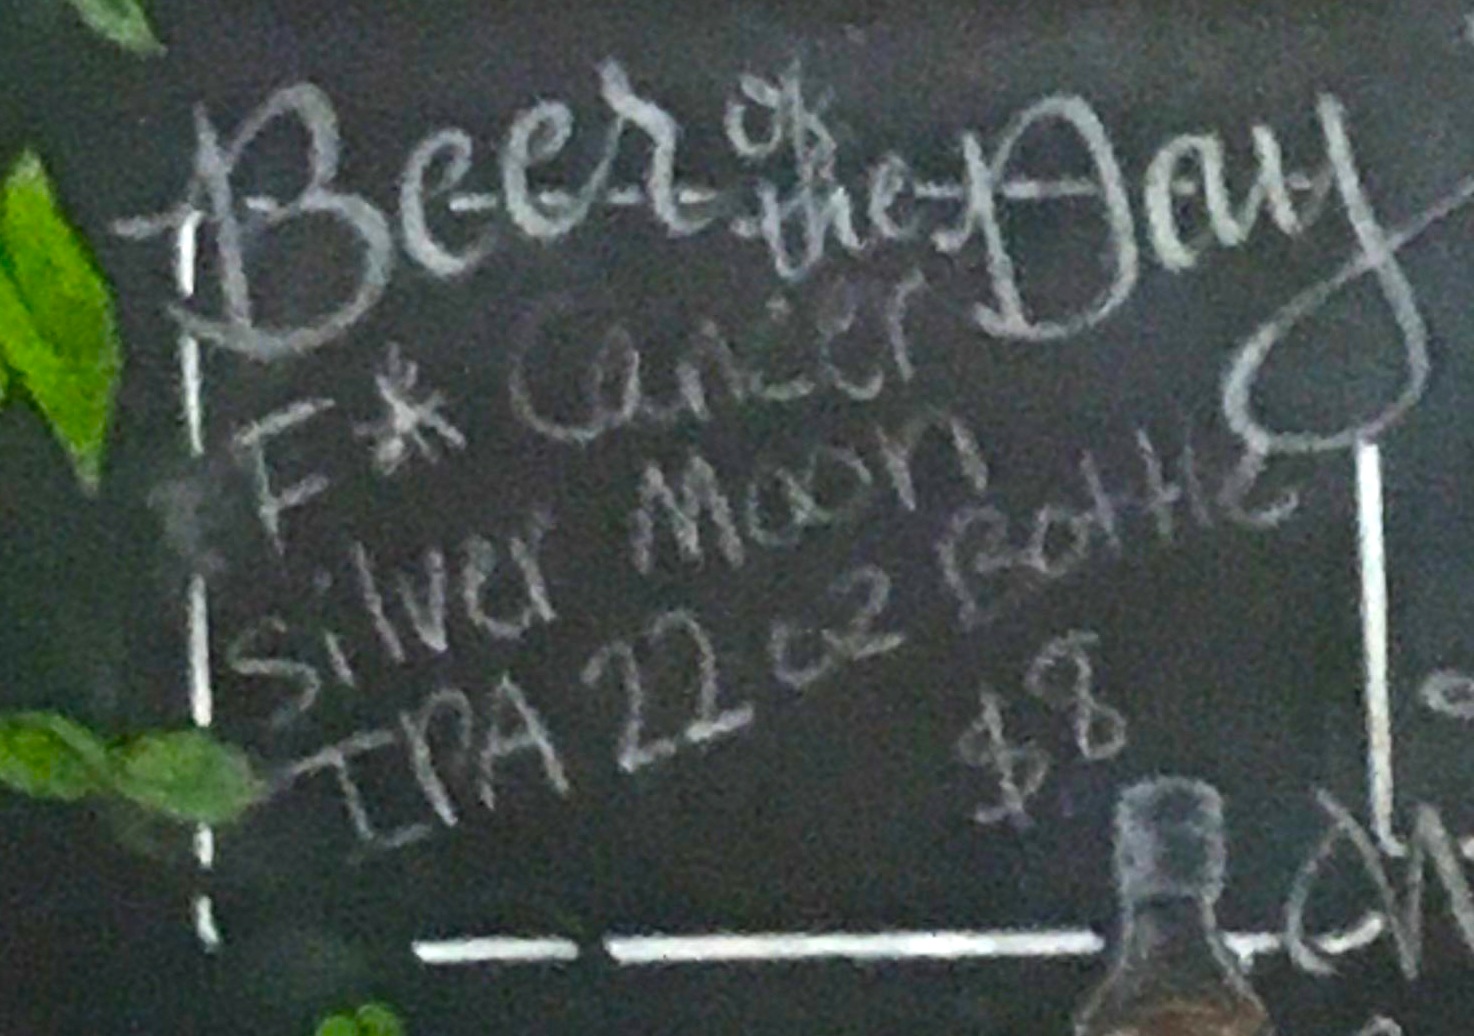 Beer of the Day
F* Cancer
Silver Moon
IPA 22 oz Bottle
$8